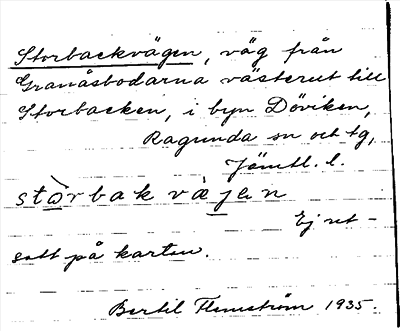 Storbackvägen, väg från
Granåsbodarna västerut till
Storbacken, i byn Döviken,
Ragunda sn och tg,
Jämtl. l.
stòrbak vàjen
Ej ut-
satt på kartan.
Bertil Flemström 1935.